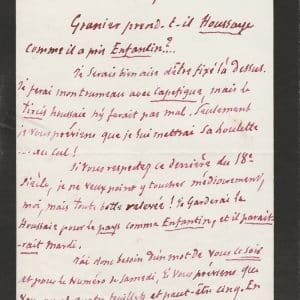 Granier prend-t-il Houssaye
comme il a pris Enfantin?..
Je serais bien aise d'être fixé là dessus.
Je ferai mon trumeau avec Capefigue, mais le
Tircis houssaie n'y ferait pas mal. Seulement
je vous préviens que je lui mettrai sa houlette
... au cul!
Si vous respectez ce derrière du 18e
Siècle, je ne veux point y toucher médiocrement,
moi, mais toute botte relevée! Je garderai le
Houssaie pour le pays comme Enfantin, et il paraît-
rait mardi.
J'ai donc besoin d'un mot de vous ce soir
et pour le Numéro de Samedi, je vous préviens que
feuillets et peut-être cinq. En